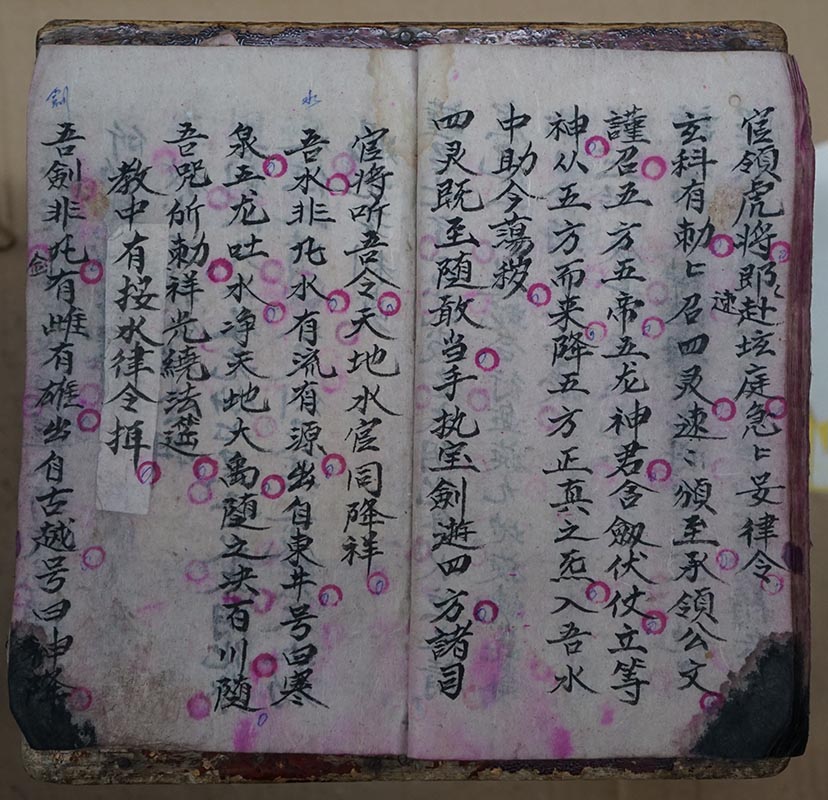 官領虎將即赴坛庭急〻如律令
玄科有勅〻召四灵速〻頒至承領公文
速
謹召五方五帝五龙神君含劔伏仗立等
神从五方而来降五方正真之炁入吾水
中助今蕩穢
四灵既至随敢当手执宝劍遊四方諸司
官将听吾令天地水官同降祥
水
吾水非凡水有流有源出自東井号曰寒
泉五龙吐水净天地大禹随之决百川随
吾咒所勅祥光繞法筵
教中有按水律令
劍
吾劍非凡有雌有雄出自古越号曰神